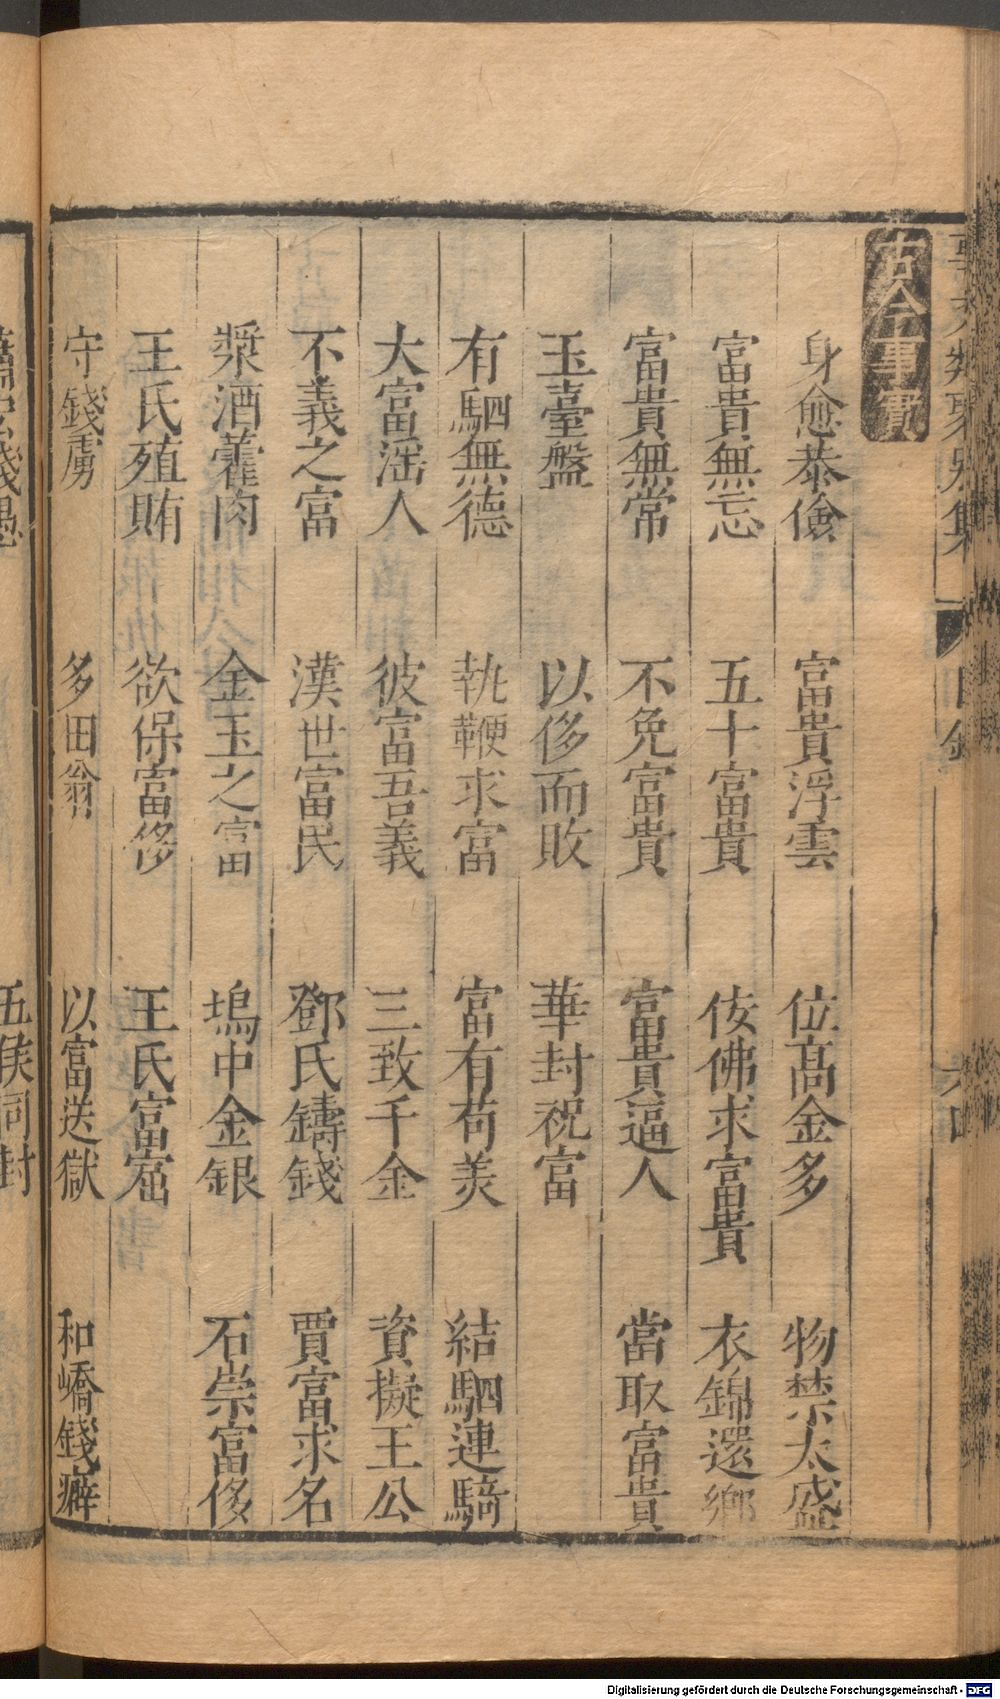 古今事實
身愈恭儉 富貴浮雲 位髙金多 物禁太盛
富貴無忘 五十富貴 佞佛求富貴 衣錦還鄉
富貴無常 不免富貴 富貴逼人 當取富貴
玉臺盤 以侈而敗 華封祝富
有駟無德 執鞭求富 富有苟美 結駟連騎
大富淫人 彼富吾義 三致千金 資擬王公
不義之富 漢世富民 鄧氏鑄錢 賈富求名
漿酒藿肉 金玉之富 塢中金銀 石崇富侈
王氏殖賄 欲保富侈 王氏富窟
守錢虜 多田翁 以富送獄 和嶠錢癖
五侯同封
Digitalisierung gefördert durch die Deutsche Forschungsgemeinschaft - DFG